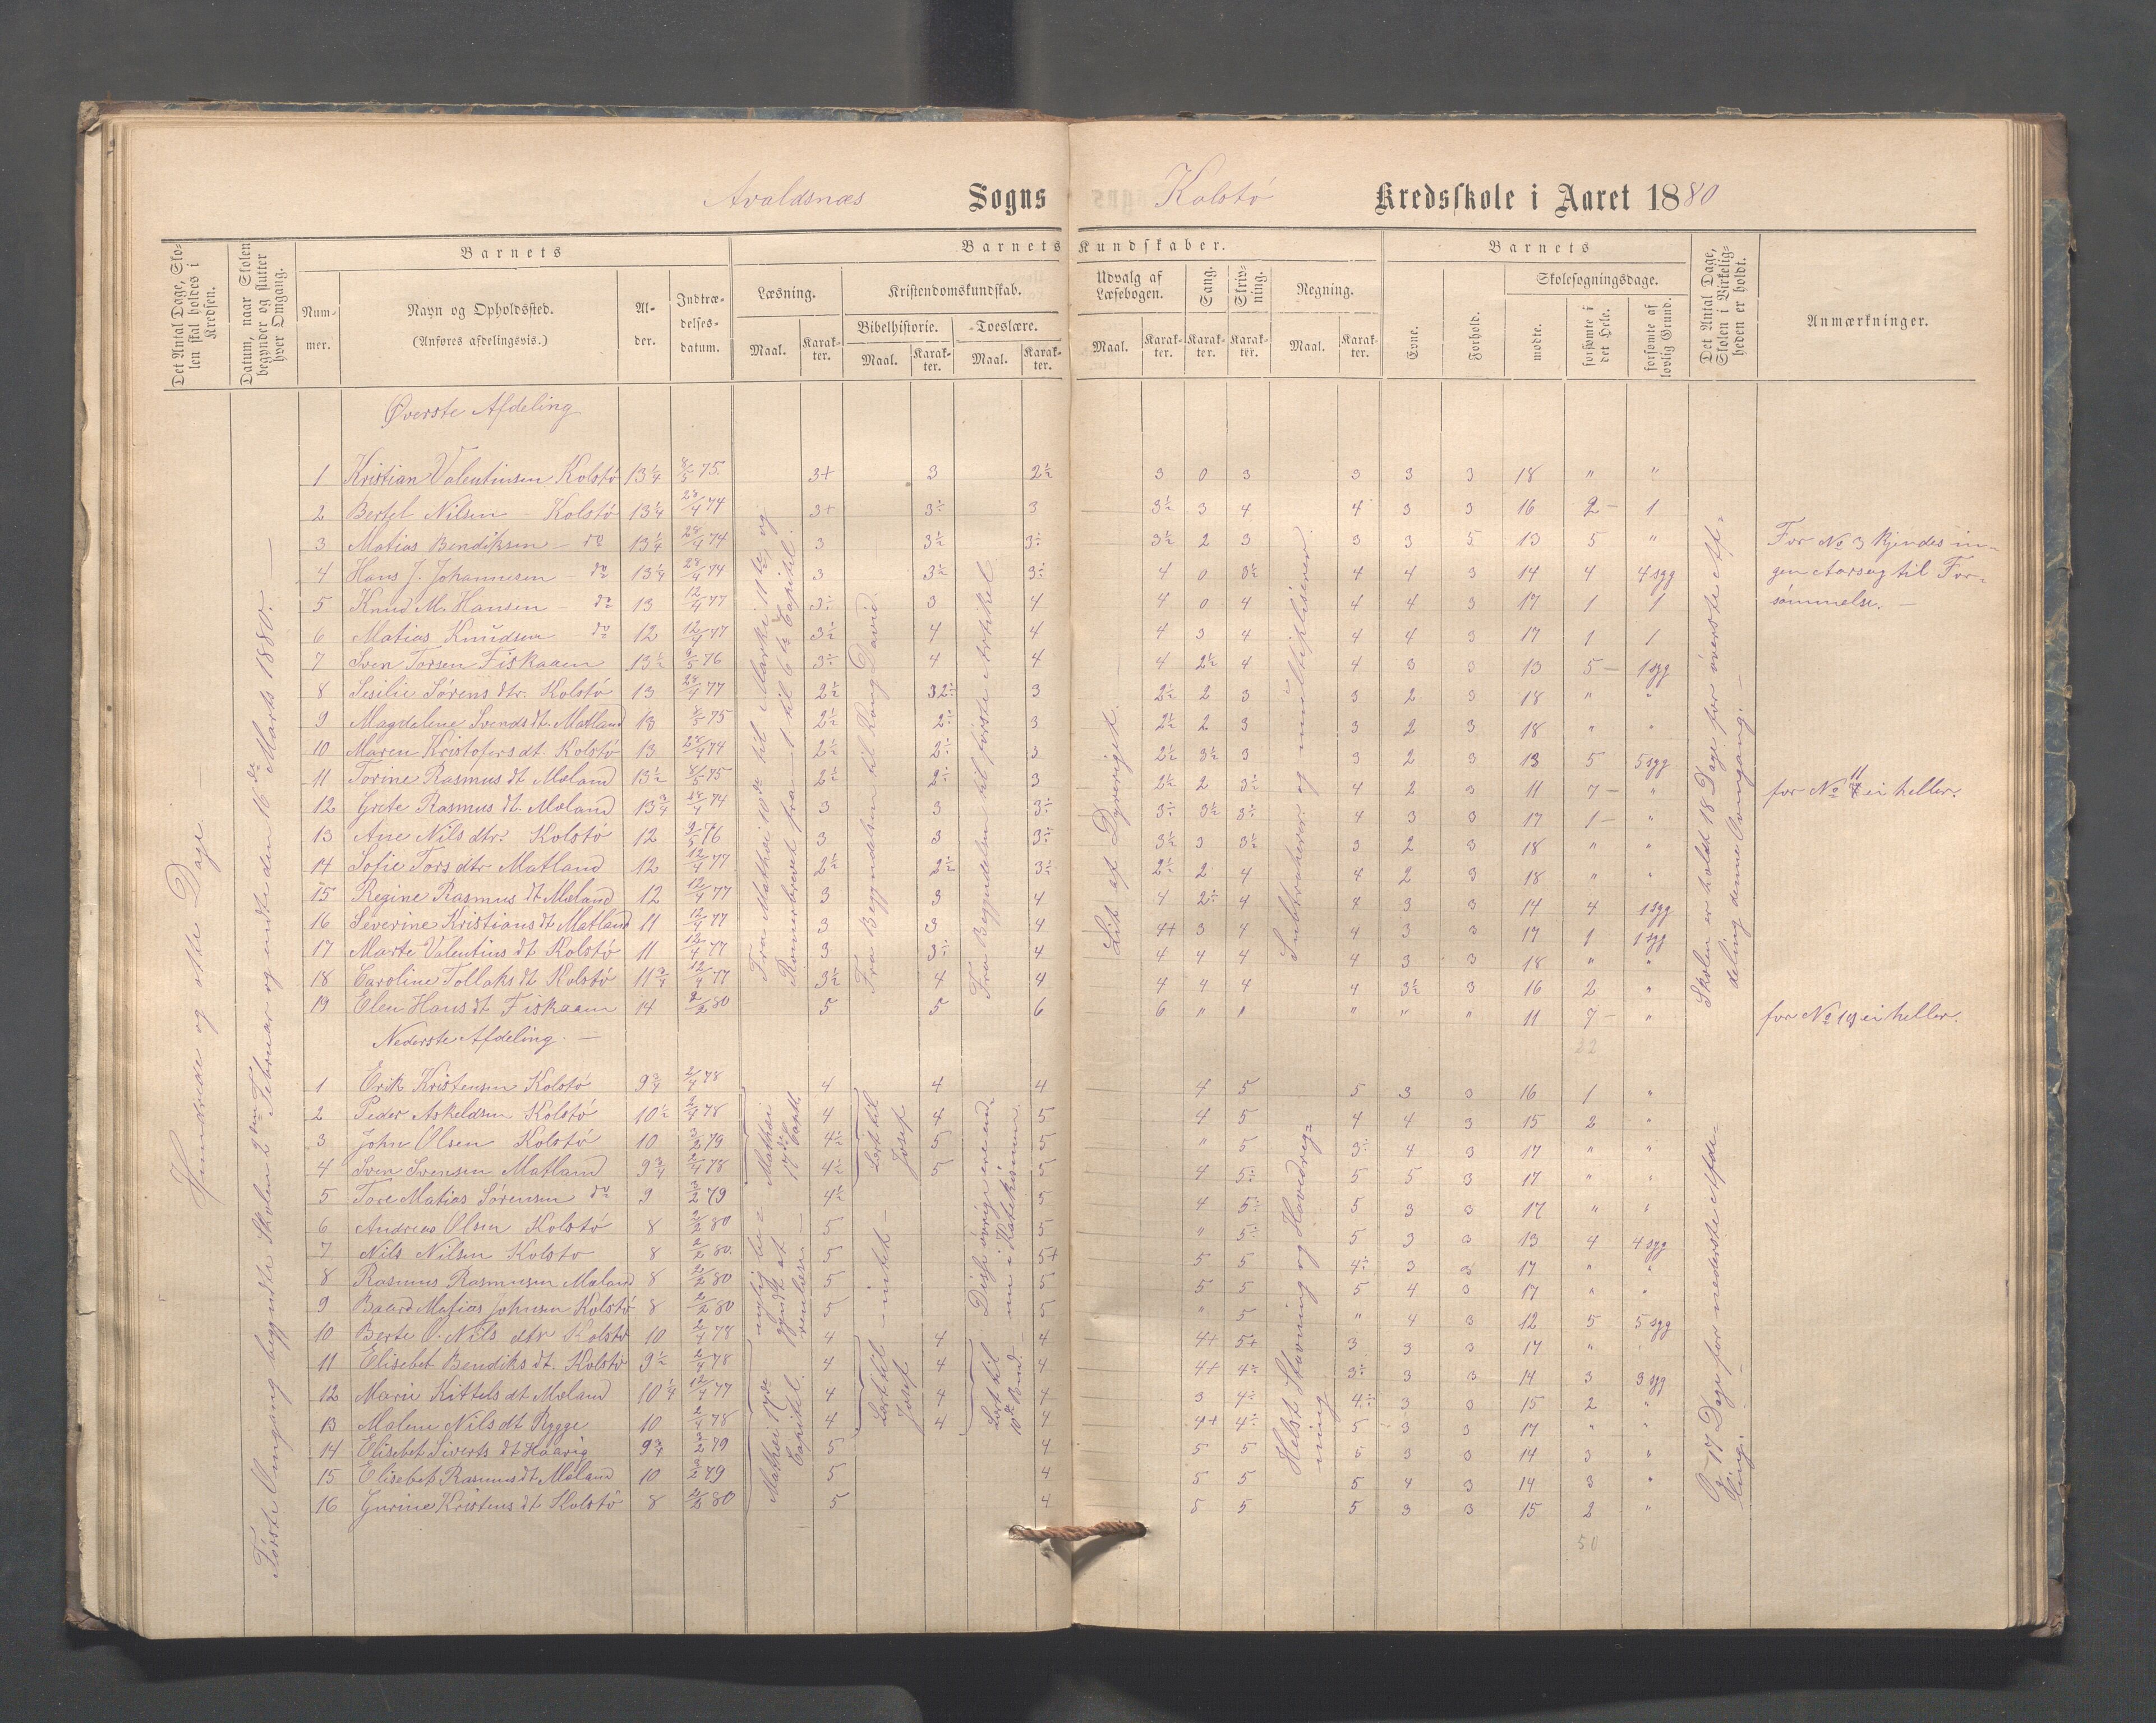 Avaldsnæs Sogns Kolstø Kredsskole i Aaret 1880
Det Antal Dage, Skolen skal holdes i Kredsen.
Datum, naar Skolen begynder og slutter hver Omgang.
Barnets
Nummer.
Navn og Opholdssted.
(Anføres afdelingsvis.)
Alder.
Indtrædelses-datum.
Barnets Kundskaber.
Læsning.
Maal. Karakter.
Kristendomskundskab.
Bibelhistorie.
Maal. Karakter.
Troeslære.
Maal. Karakter.
Udvalg af Læsebogen.
Maal. Karakter.
Sang.
Karakter.
Skrivning.
Karakter.
Regning.
Maal. Karakter.
Barnets
Evne.
Forhold.
Skolesøgningsdage.
mødte.
forsømte i det Hele.
forsømte af lovlig Grund.
Det Antal Dage, Skolen i Virkeligheden er holdt.
Anmærkninger.
Hundrede og otte Dage
Første Omgang begyndte Skolen 2den Februar og endte den 16de Marts 1880. —
Øverste Afdeling
1 Kristian Valentinsen Kolstø 13¼ 8/5 75. 3+ 3 2½ 3 0 3 3 3 3 18 " "
2 Bertel Nilsen – Kolstø 13¼ 28/4 74 3+ 3÷ 3 3½ 3 4 4 3 3 16 2 – 1
3 Matias Bendiksen – do 13¼ 28/4 74 3 3½ 3÷ 3½ 2 3 3 3 5 13 5 "
4 Hans J. Johannesen – do 13¼ 28/4 74 3 3½ 3÷ 4 0 3½ 4 4 3 14 4 4 syg
5 Knud M. Hansen – do 13 12/4 77 3÷ 3 4 4 0 4 4 4 3 17 1 1
6 Matias Knudsen do 12 12/4 77 3½ 4 4 4 3 4 4 4 3 17 1 1
7 Sven Torsen Fiskaaen 13½ 9/5 76 3÷ 4 4 4 2½ 4 4 3 3 13 5 – 1 syg
8 Sesilie Sørens dtr. Kolstø 13 28/4 77 2½ 32÷ 3 2½ 2 3 3 2 3 18 " "
9 Magdelene Svends dt. Matland 13 8/5 75 2½ 2÷ 3 2½ 2 3 3 2 3 18 " "
10 Maren Kristofers dt Kolstø 13 28/4 74 2½ 2÷ 3 2½ 3½ 3 3 2 3 13 5 5 syg
11 Torine Rasmus dt Mæland 13½ 8/5 75 2½ 2÷ 3 2½ 2 3½ 4 2 3 11 7 – "
12 Grete Rasmus dt. Mæland 13¾ 28/4 74 3 3 3÷ 3÷ 3½ 3÷ 4 3 3 17 1 – "
13 Ane Nils dtr. Kolstø 12 9/5 76 3 3 3÷ 3½ 3 3½ 3 2 3 18 " "
14 Sofie Tors dtr Matland 12 12/4 77 2½ 2½ 3½ 2½ 2 4 4 2 3 18 " "
15 Regine Rasmus dt Mæland 12 12/4 77 3 3 4 4 2÷ 4 4 3 3 14 4 1 syg
16 Severine Kristians dt Matland 11 12/4 77 3 3 4 4+ 3 4 4 3 3 17 1 1 syg
17 Marte Valentins dt Kolstø 11 12/4 77 3 3÷ 4 4 4 4 4 3 3 18 " "
18 Caroline Tollaks dt Kolstø 11¾ 12/4 77 3½ 4 4 4 4 4 4 3½ 3 16 2 "
19 Elen Hans dt Fiskaaen 14 2/2 80 5 5 6 6 " " " " " 11 7 – "
32
Fra Mathæi 10de til Marki 11te og
Romerbrevet fra 1 til 6te Capitel.
Fra Begyndelsen til Kong David.
Fra Begyndelsen til første Artikel
Lidt af Dyreriget.
Subtraherer og multiplicerer.
Skolen er holdt 18 Dage for øverste Afdeling denne Omgang. –
For No 3 kjendes ingen Aarsag til Forsømmelse. –
for No 11 ei heller.
for No 19 ei heller.
Nederste Afdeling. —
1 Erik Kristensen Kolstø 9¾ 2/4 78 4 4 4 4 5 5 3 3 16 1 "
2 Peder Askeldsen Kolstø 10½ 2/4 78 4 4 5 4 5 4 4 3 15 2 "
3 John Olsen Kolstø 10 3/2 79 4½ 5 5 " 5 3÷ 4 3 17 " "
4 Sven Svensen Matland 9¾ 2/4 78 4½ 5 5 4 5÷ 5 5 3 17 " "
5 Tore Matias Sørensen do 9 3/2 79 4½ 5 4 5÷ 5 3 3 17 " "
6 Andreas Olsen Kolstø 8 2/2 80 5 5 " 5÷ 5 3 3 13 4 4 syg
7 Nils Nilsen Kolstø 8 2/2 80. 5 5+ 5 5 4÷ 3 3 17 " "
8 Rasmus Rasmusen Mæland 8 2/2 80 5 5 5 5 5 4 3 17 " "
9 Baard Matias Johnsen Kolstø 8 2/2 80 5 5 " 5 " 4 3 12 5 5 syg
10 Berte O. Nils dtr Kolstø 10 2/4 78 4 4 4 4+ 5+ 3 3 3 17 "
11 Elisebet Bendiks dt. Kolstø 9½ 2/4 78 4 4 4 4+ 4÷ 3÷ 3 3 14 3 3 syg
12 Marie Kittels dt Mæland 10¼ 12/4 77 4 4 4 3 4÷ 4÷ 3 3 15 2 "
13 Malene Nils dt Rygge 10 2/4 78 4 4 4 4+ 4÷ 5 3 3 17 " "
14 Elisebet Siverts dt Haavig 9¾ 3/2 79 5 4 5 5 5 3 3 14 3 "
15 Elisebet Rasmus dt Mæland 10 3/2 79 5 4 5 5 5 4 3 14 3 "
16 Gurine Kristens dt Kolstø 8 2/2 80 5 4 5 5 5 3 3 15 2 "
50
Mathæi 17de Capt.
nylig begyndt at
Mathæi 17de Capitel.
Lært til Josef
– intet –
Lært til Josef
Disse øvrige ere ende i Katekismen.
Lært til 10de Bud.
Helst Stavning og Hovedregning
Og 17 Dage for nederste Afdeling. –